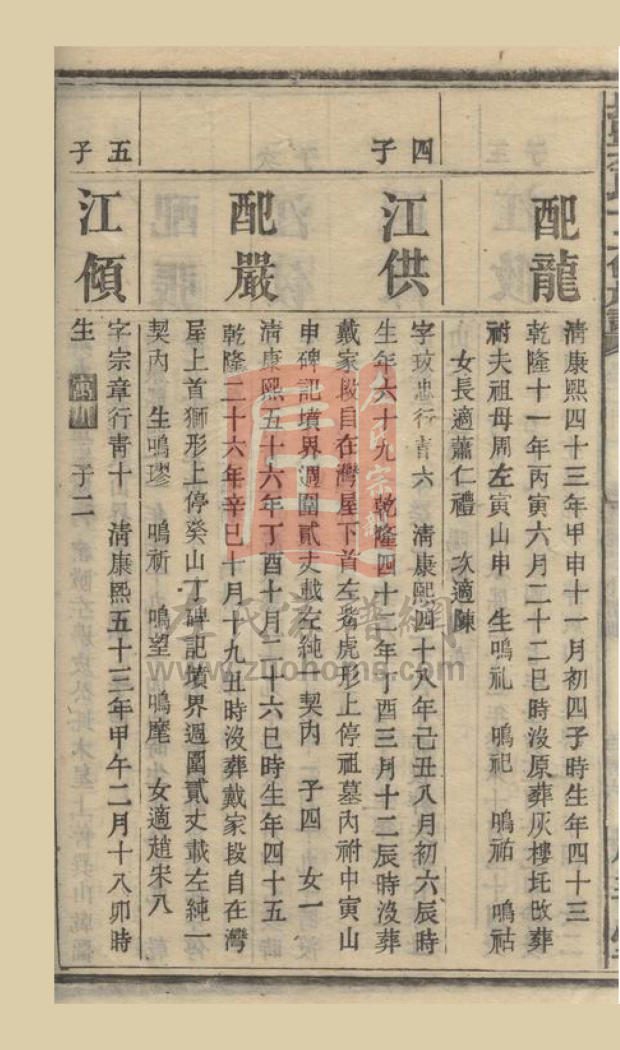 配龍
清康熙四十三年甲申十一月初四子時生年四十三
乾隆十一年丙寅六月二十二巳時沒原葬灰樓圫改葬
祔夫祖母周左寅山申 生鳴礼 鳴祀 鳴祐 鳴祜
女長適蕭仁禮 次適陳
四子
江供
字玫忠行青六 清康熙四十八年己丑八月初六辰時
生年六十九 乾隆四十二年丁酉三月十二辰時沒葬
戴家段自在灣屋下首左旁虎形上停祖墓內祔中寅山
申碑記墳界週圍貳丈載左純一契內 子四 女一
配嚴
清康熙五十六年丁酉十月二十六巳時生年四十五
乾隆二十六年辛巳十月十九丑時沒葬戴家段自在灣
屋上首獅形上停癸山丁碑記墳界週圍貳丈載左純一
契內 生鳴璆 鳴祈 鳴望 鳴麾 女適趙宋八
五子
江傾
字宗章行靑十 清康熙五十三年甲午二月十八卯時
生 子二
左氏宗親
左氏族譜網
www.zuohome.com